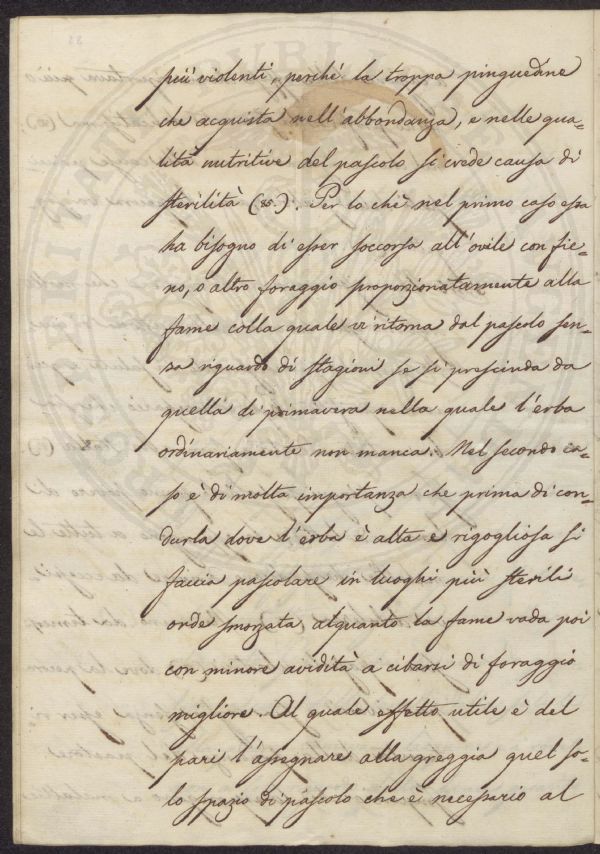 più violenti, perché la troppa pinguedine
che acquista nell'abbondanza, e nelle qua-
lità nutritive del pascolo si crede causa di
sterilità (85.). Per lo chè nel primo caso essa
ha bisogno di esser soccorsa all'ovile con fie-
no, o altro foraggio proporzionatamente alla
fame colla quale vi ritorna dal pascolo sen-
za riguardo di stagioni se si prescinda da
quella di primavera nella quale l'erba
ordinariamente non manca. Nel secondo ca-
so è di molta importanza che prima di con-
durla dove l'erba è alta e rigogliosa si
faccia pascolare in luoghi più sterili
onde smorzata alquanto la fame vada poi
con minore avidità a cibarsi di foraggio
migliore. Al quale effetto utile è del
pari l'assegnare alla greggia quel so-
lo spazio di pascolo che è necessario al